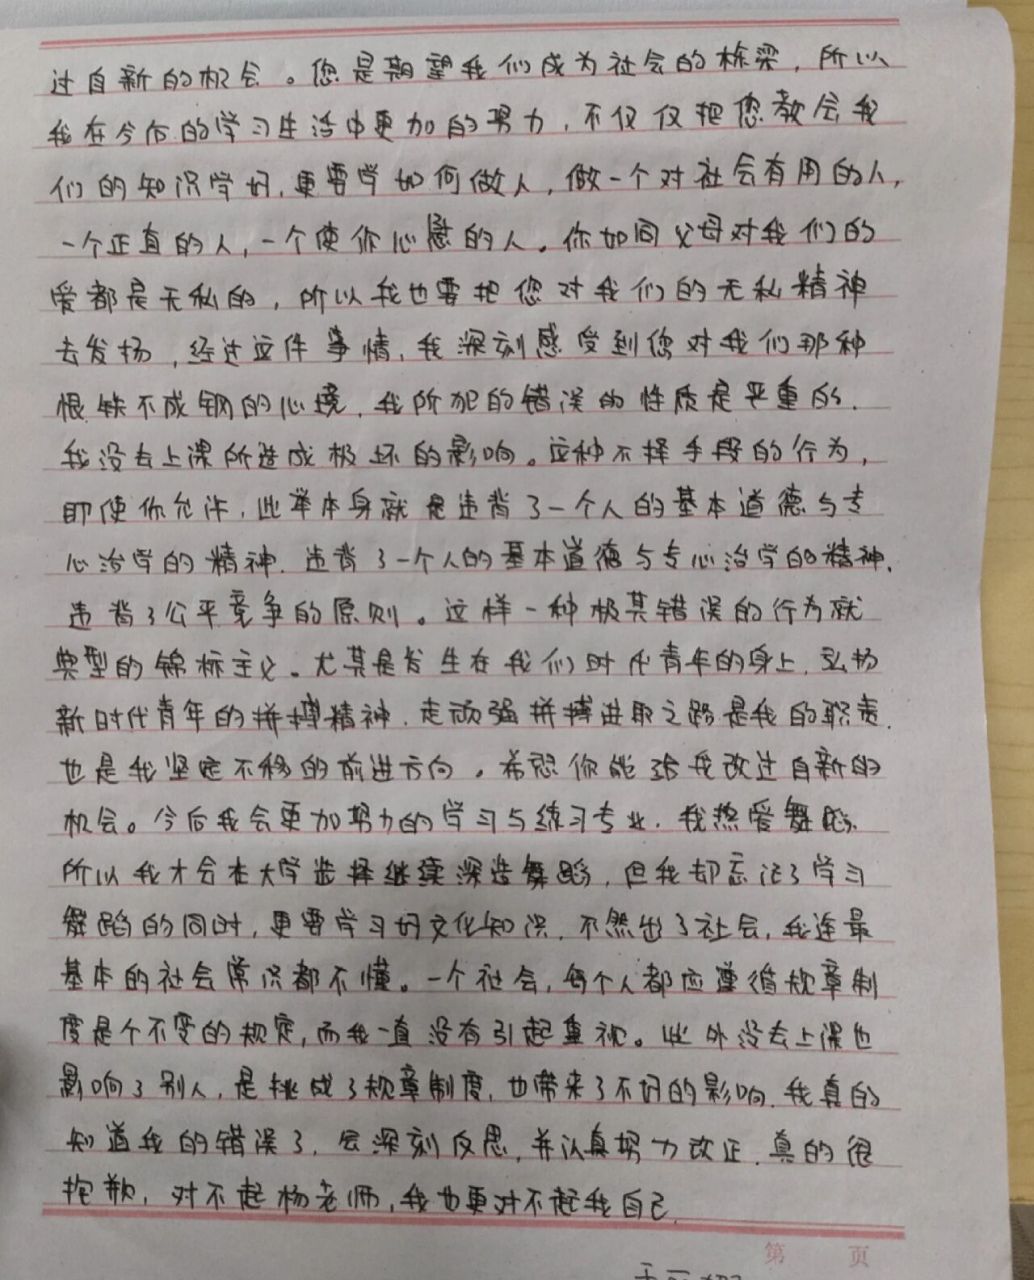 过自新的机会。您是期望我们成为社会的栋梁，所以
我在今后的学习生活中更加的努力，不仅仅把您教会我
们的知识学好，更要学如何做人，做一个对社会有用的人，
一个正直的人，一个使你心慰的人。你如同父母对我们的
爱都是无私的，所以我也要把您对我们的无私精神
去发扬，经过这件事情，我深刻感受到您对我们那种
恨铁不成钢的心境，我所犯的错误的性质是严重的．
我没去上课所造成极坏的影响。这种不择手段的行为，
即使你允许，此举本身就是违背了一个人的基本道德与专
心治学的精神．违背了一个人的基本道德与专心治学的精神．
违背了公平竞争的原则。这样一种极其错误的行为就
典型的锦标主义。尤其是发生在我们时代青年的身上．弘扬
新时代青年的拼搏精神．走顽强拼搏进取之路是我的职责．
也是我坚定不移的前进方向。希望你能给我改过自新的
机会。今后我会更加努力的学习与练习专业．我热爱舞蹈．
所以我才会在大学选择继续深造舞蹈，但我却忘记了学习
舞蹈的同时，更要学习好文化知识．不然出了社会，我连最
基本的社会常识都不懂。一个社会，每个人都应遵循规章制
度是个不变的规定，而我一直没有引起重视。此外没去上课也
影响了别人，是挑战了规章制度，也带来了不好的影响．我真的
知道我的错误了，会深刻反思，并认真努力改正．真的很
抱歉，对不起杨老师，我也更对不起我自己．
第 页